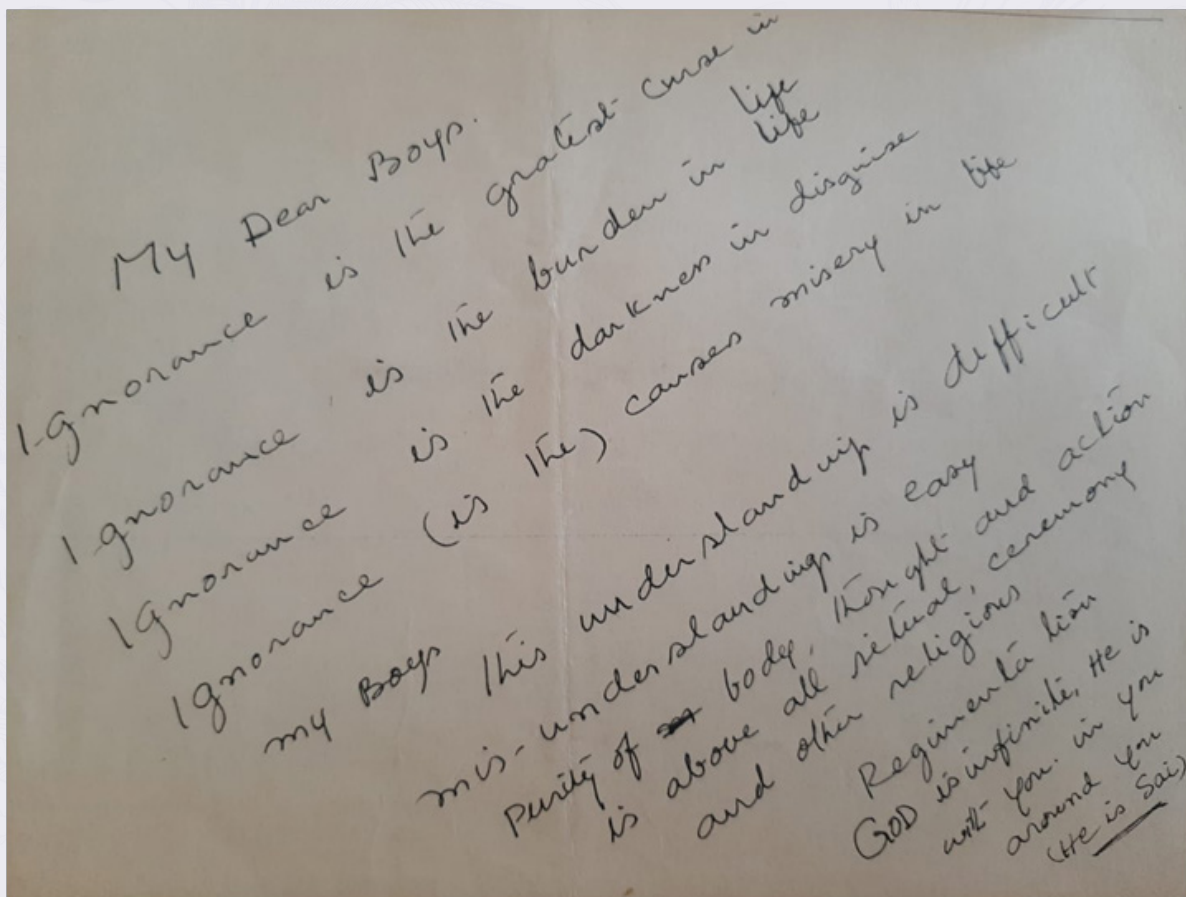 My Dear Boys.
Ignorance is the gratest curse in life
Ignorance is the burden in life
Ignorance is the darkness in disguise
Ignorance (is the) causes misery in life
my Boys this understanding is difficult
mis-understandings is easy
Purity of body, thought and action
is above all ritual, ceremony
and other religious
Regimentation
GOD is infinite, He is
with you. in you
around you
(He is Sai)